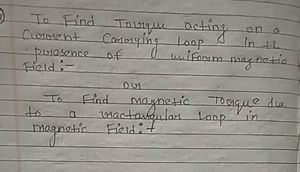 To Find Torque acting on a
Current Carrying Loop in the
presence of uniform magnetic
Field:-
OR
To Find magnetic Torque due
to a ractangular Loop in
magnetic Field:-